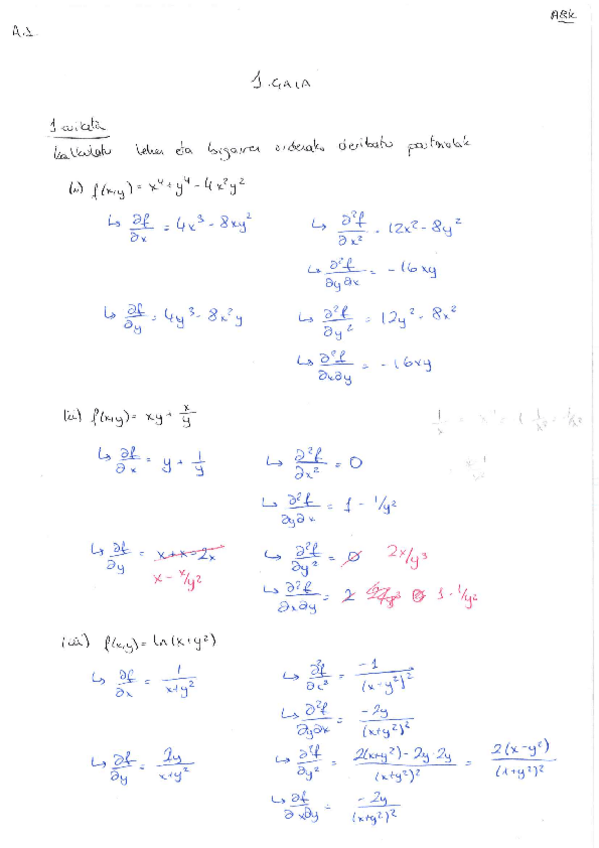 A.1
1. GAIA
1. ariketa
Kalkulatu lehen eta bigarren ordenako deribatu partzialak
(i) f(x,y) = x⁴ + y⁴ - 4x²y²
↳ ∂f/∂x = 4x³ - 8xy² ↳ ∂²f/∂x² = 12x² - 8y²
↳ ∂²f/∂y∂x = -16xy
↳ ∂f/∂y = 4y³ - 8x²y ↳ ∂²f/∂y² = 12y² - 8x²
↳ ∂²f/∂x∂y = -16xy
(ii) f(x,y) = xy + x/y
↳ ∂f/∂x = y + 1/y ↳ ∂²f/∂x² = 0
↳ ∂²f/∂y∂x = 1 - 1/y²
↳ ∂f/∂y = x+x=2x ↳ ∂²f/∂y² = 0 2x/y³
x - x/y² ↳ ∂²f/∂x∂y = 2 0 1 - 1/y²
iii) f(x,y) = ln(x+y²)
↳ ∂f/∂x = 1/(x+y²) ↳ ∂²f/∂x² = -1/(x-y²)²
↳ ∂²f/∂y∂x = -2y/(x+y²)²
↳ ∂f/∂y = 2y/(x+y²) ↳ ∂²f/∂y² = (2(x+y²) - 2y·2y)/(x+y²)² = 2(x-y²)/(x+y²)²
↳ ∂f/∂x∂y = -2y/(x+y²)²